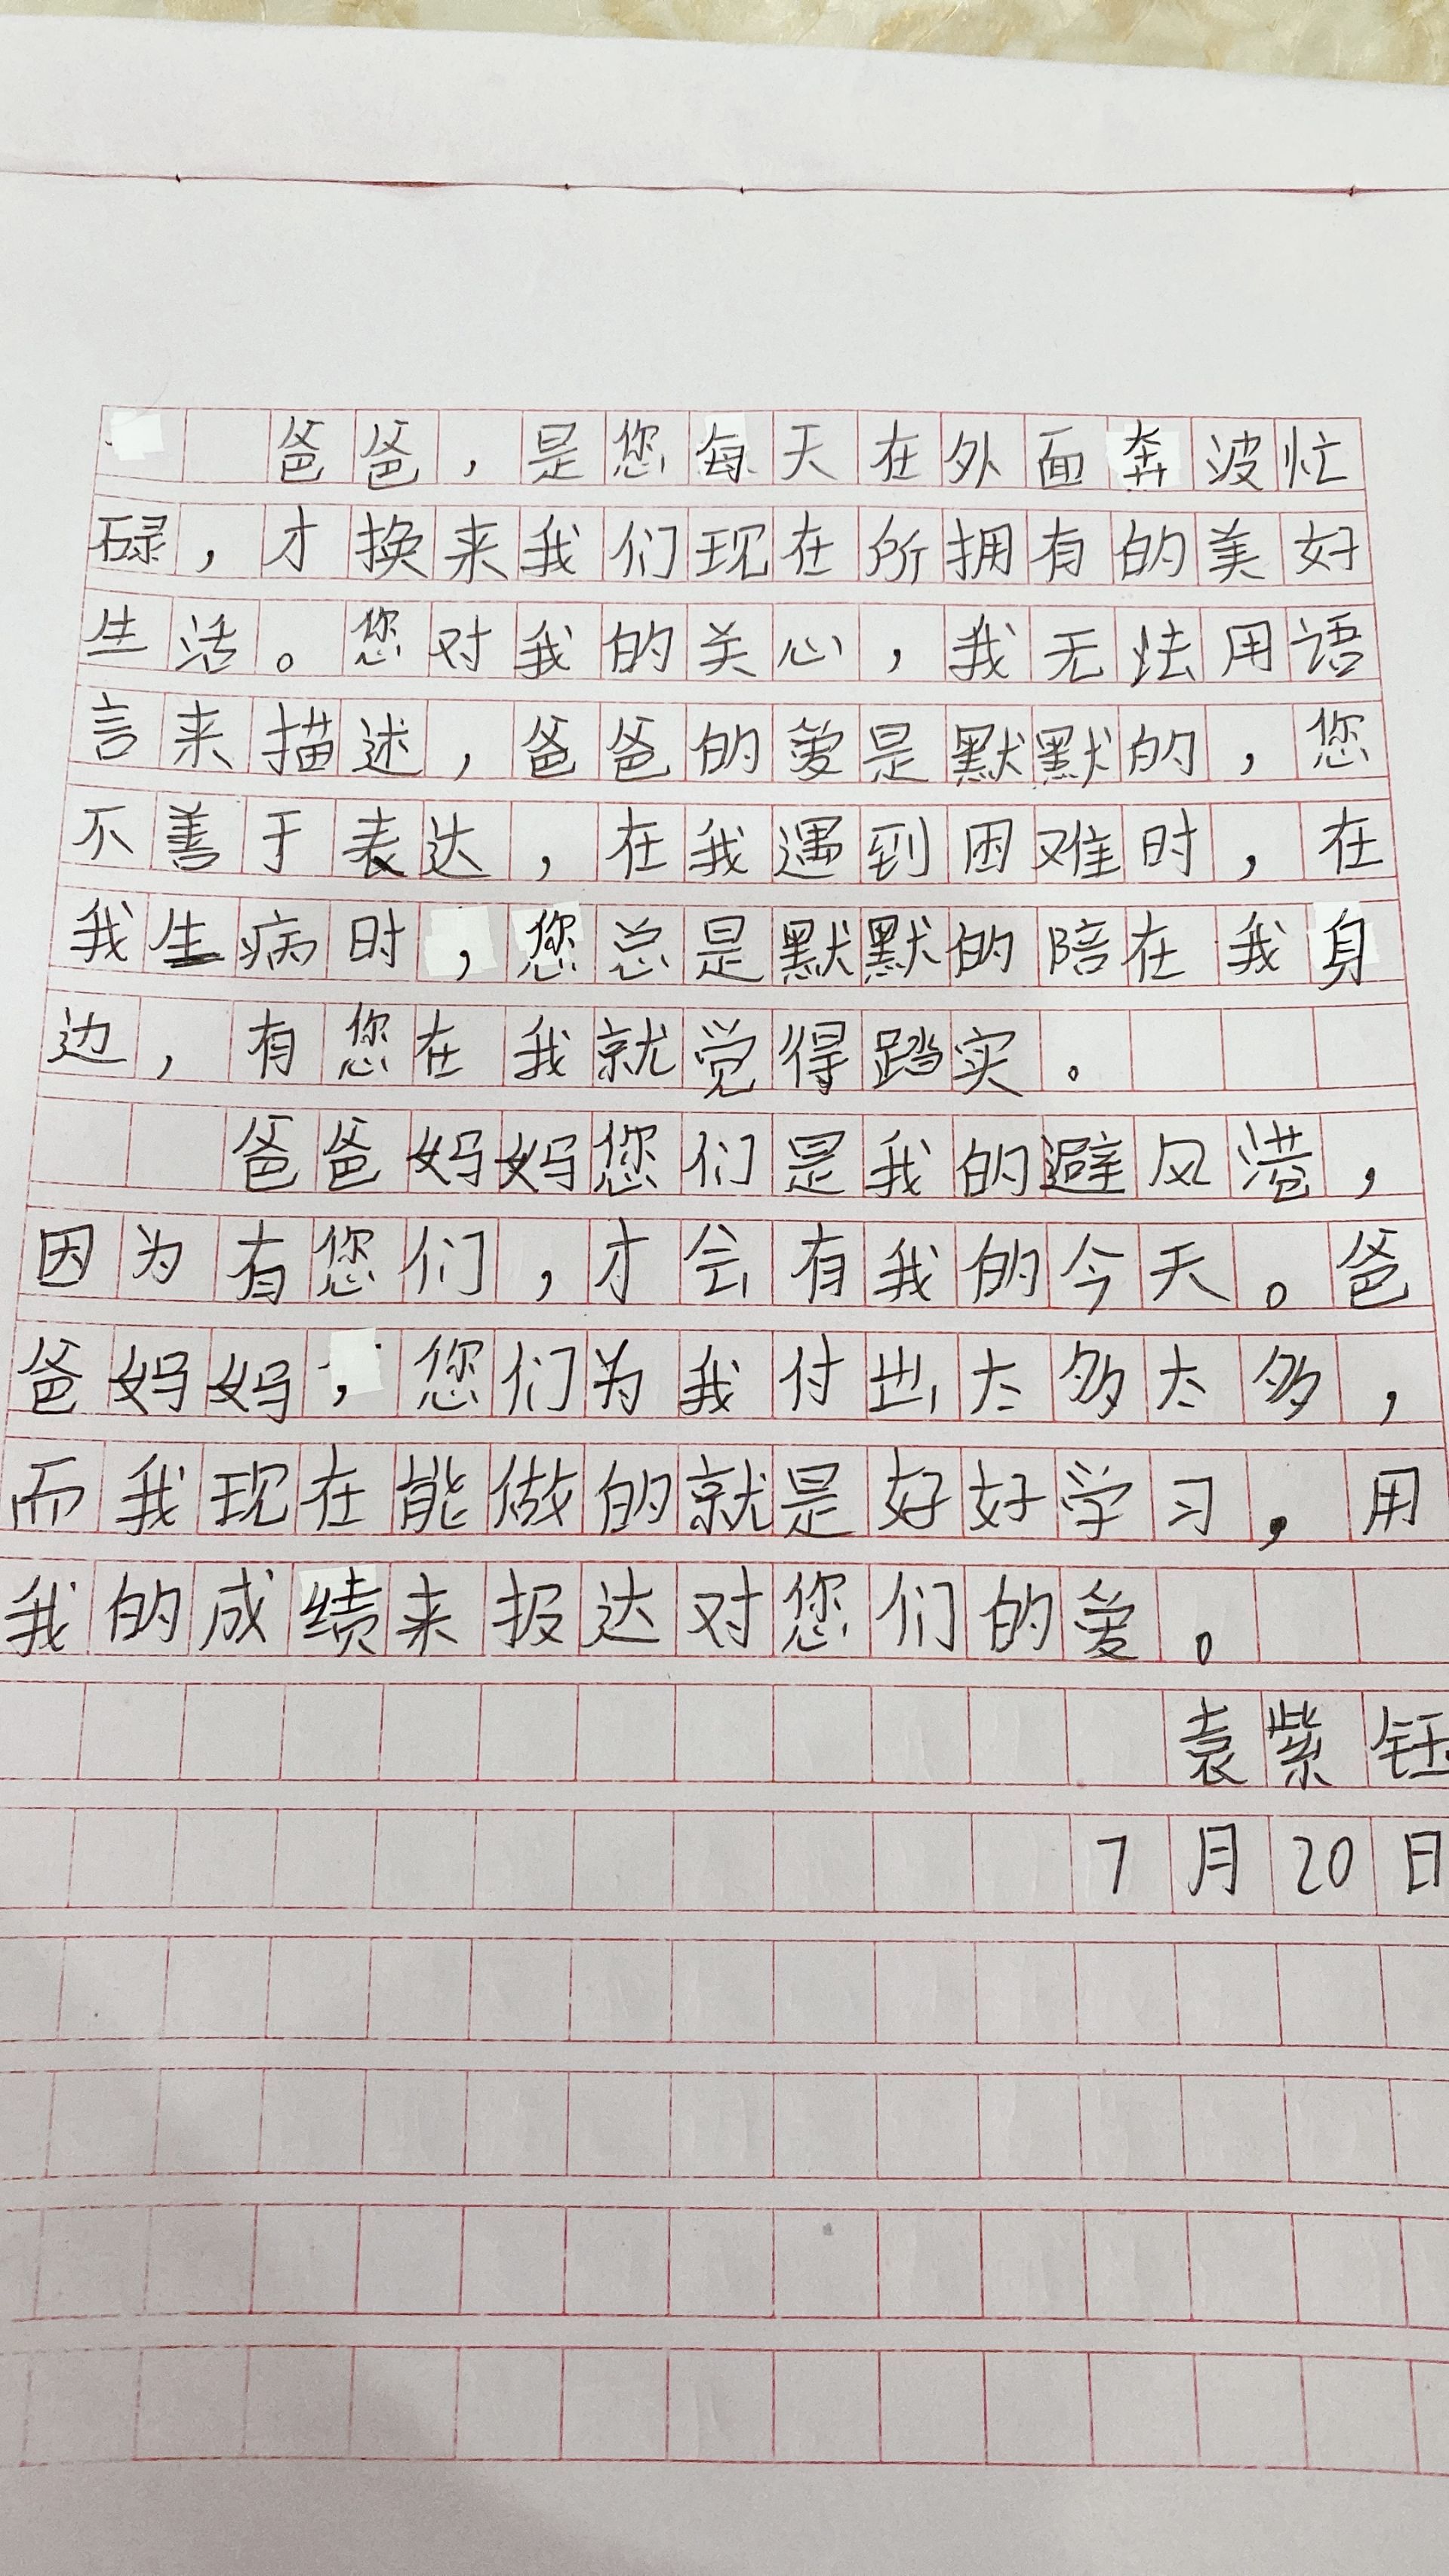 爸爸，是您每天在外面奔波忙
碌，才换来我们现在所拥有的美好
生活。您对我的关心，我无法用语
言来描述，爸爸的爱是默默的，您
不善于表达，在我遇到困难时，在
我生病时，您总是默默的陪在我身
边，有您在我就觉得踏实。
爸爸妈妈您们是我的避风港，
因为有您们，才会有我的今天。爸
爸妈妈，您们为我付出太多太多，
而我现在能做的就是好好学习，用
我的成绩来报达对您们的爱。
袁紫钰
7月20日